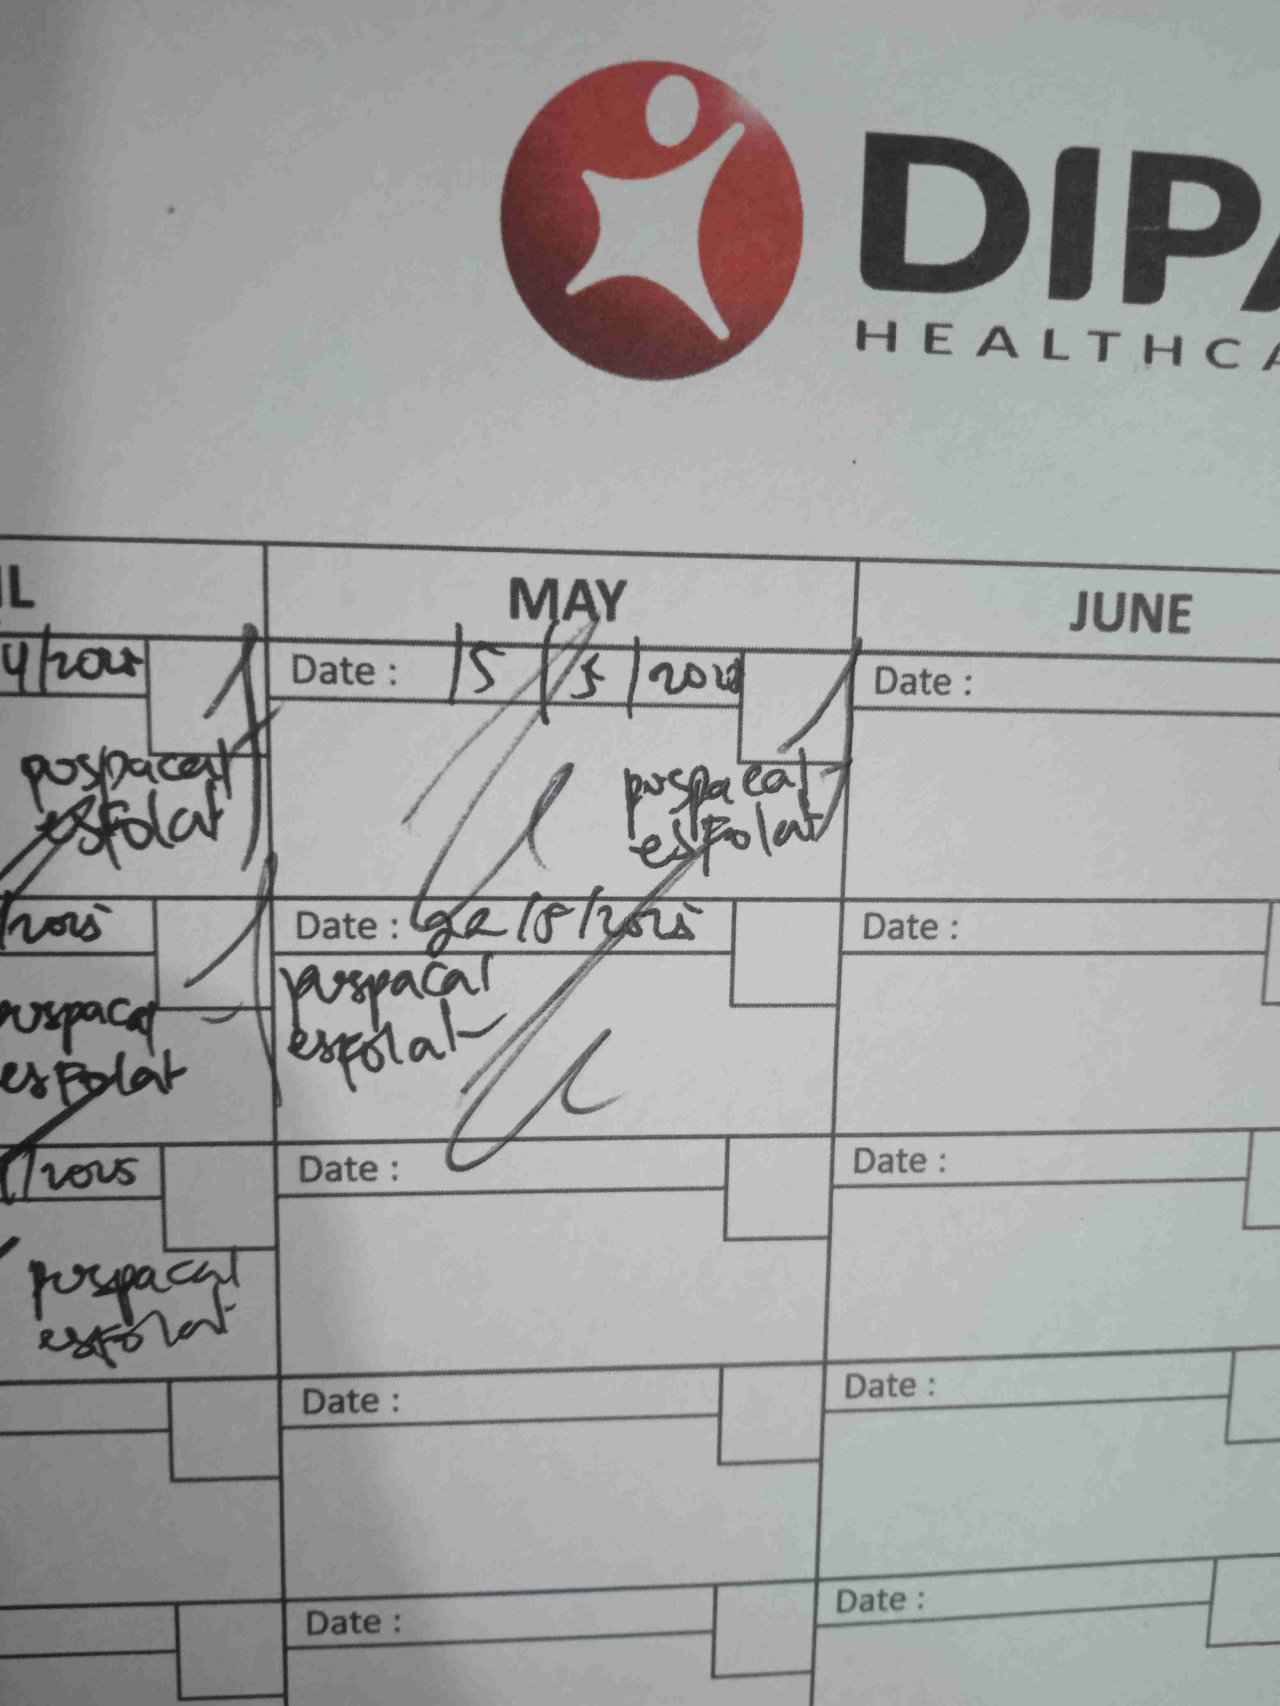 DIPA
HEALTHCA
IL
MAY
JUNE
4/2025
Date : 15/5/2025
Date :
puspacal
esfolat
puspacal
esfolat
/2025
Date : 22/5/2025
Date :
puspacal
esfolat
puspacal
esfolat
/2025
Date :
Date :
puspacal
esfolat
Date :
Date :
Date :
Date :